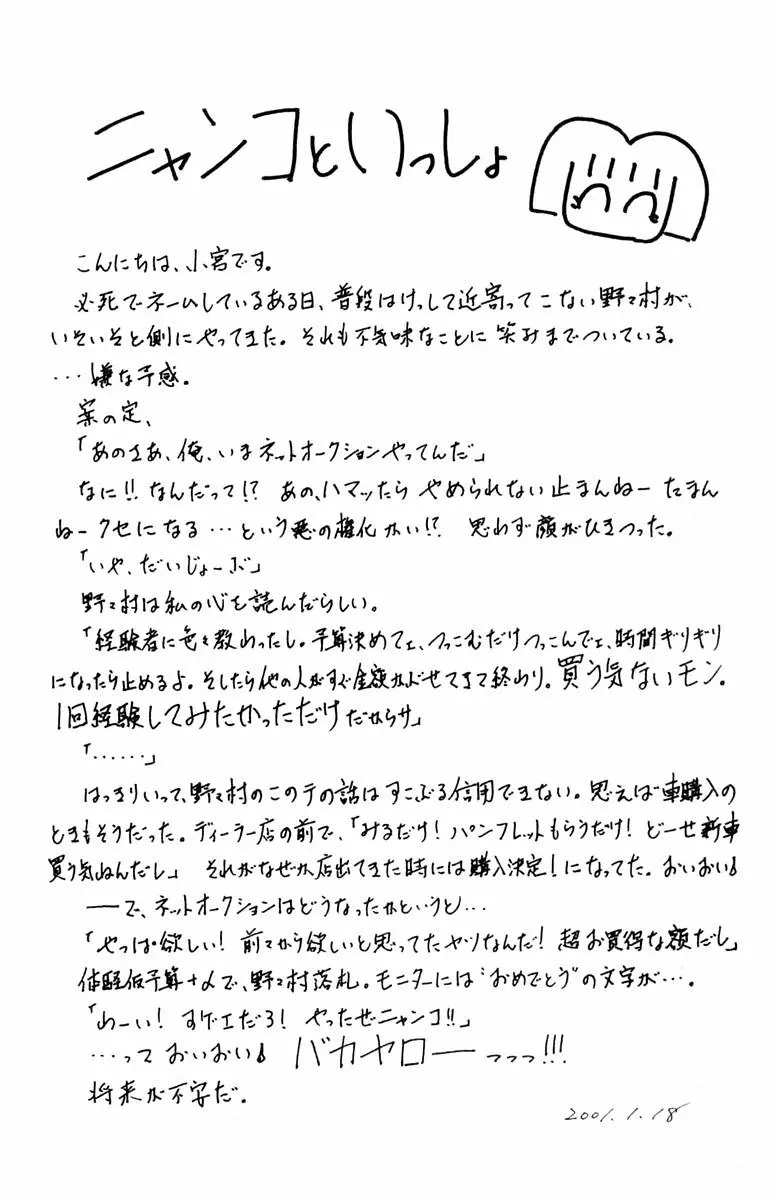 ニャンコといっしょ
こんにちは、小宮です。
必死でネームしているある日、普段はけっして近寄ってこない野々村が、
いそいそと側にやってきた。それも不気味なことに笑みまでついている。
…嫌な予感。
案の定、
「あのさあ、俺、いまネットオークションやってんだ」
なに!! なんだって!? あの、ハマッたら やめられない止まんねー たまん
ねークセになる…という悪の権化かい!? 思わず顔がひきつった。
「いや、だいじょーぶ」
野々村は私の心を読んだらしい。
「経験者に色々教わったし。予算決めてェ、つっこむだけつっこんでェ、時間ギリギリ
になったら止めるよ。そしたら他の人がすぐ金額かぶせてきて終わり。買う気ないモン。
1回経験してみたかっただけだからサ」
「……」
はっきりいって、野々村のこのテの話はすこぶる信用できない。思えば車購入の
ときもそうだった。ディーラー店の前で、「みるだけ! パンフレットもらうだけ! どーせ新車
買う気ねんだし」 それがなぜか店出てきた時には購入決定!になってた。おいおい♪
――で、ネットオークションはどうなったかというと…
「やっぱ欲しい! 前々から欲しいと思ってたヤツなんだ! 超お買得な額だし」
予算+αで、野々村落札。モニターには"おめでとう"の文字が…。
「わーい! すげエだろ! やったぜニャンコ!!」
…って おいおい♪ バカヤローーっっっ!!!
将来が不安だ。
2001.1.18